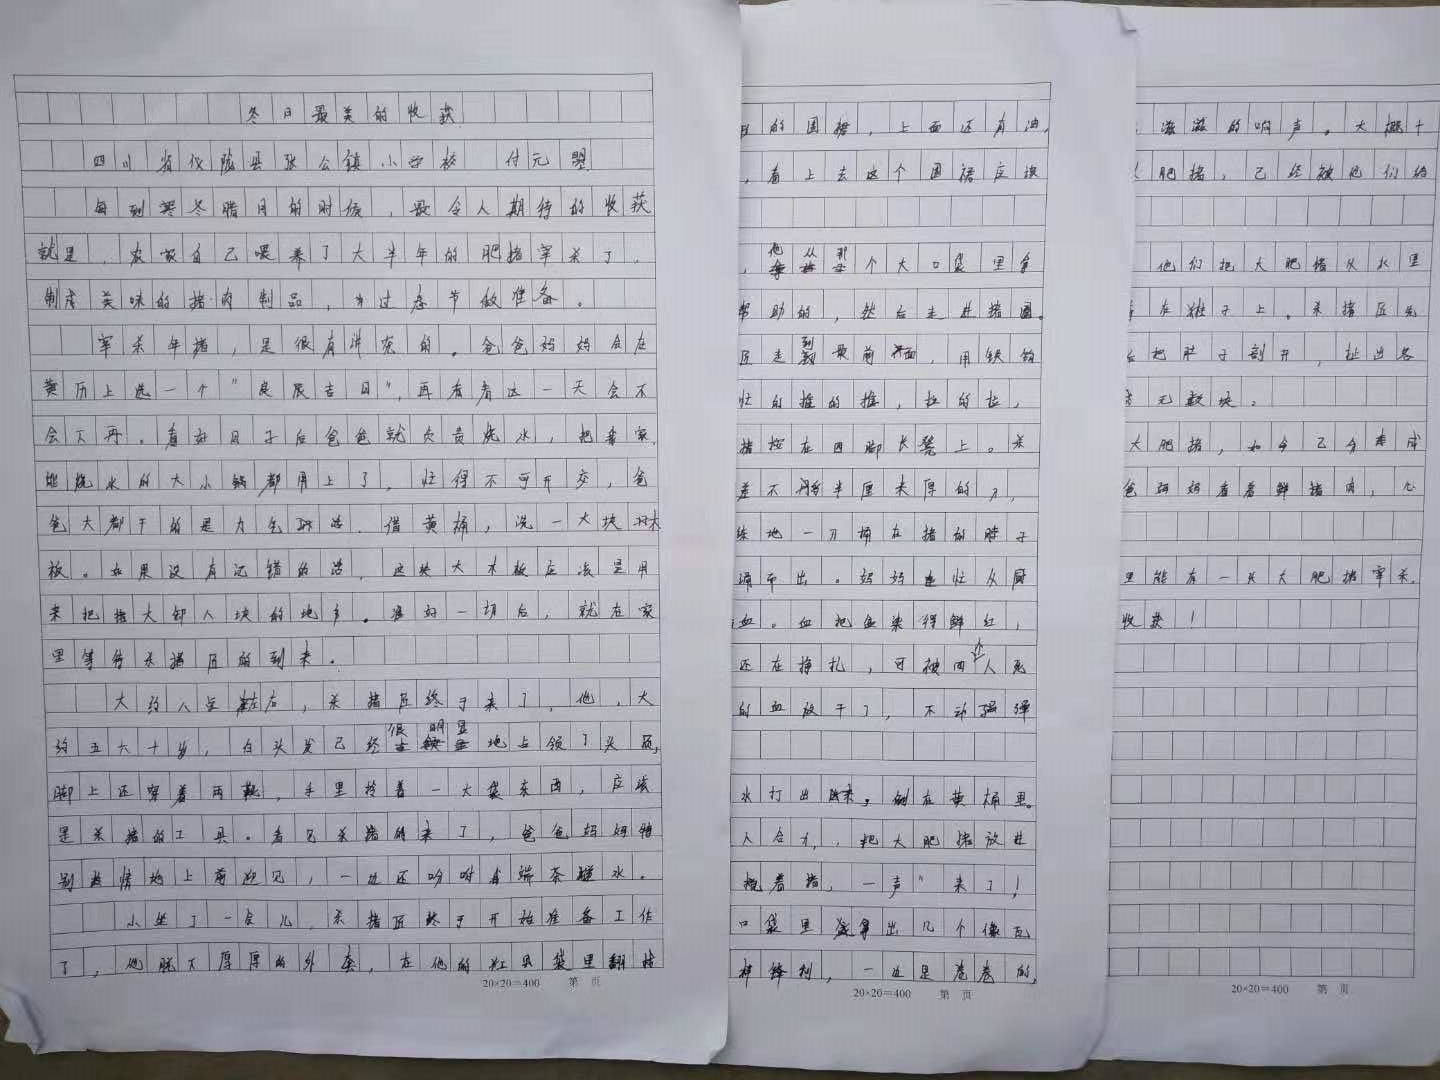 冬日最美的收获
四川省仪陇县张公镇小学校 付元盟
每到寒冬腊月的时候，最令人期待的收获
就是，农家自己喂养了大半年的肥猪宰杀了，
制成美味的猪肉制品，为过春节做准备。
宰杀年猪，是很有讲究的。爸爸妈妈会在
黄历上选一个"良辰吉日"，再看看这一天会不
会下雨。看好日子后爸爸就负责烧水，把我家
能烧水的大小锅都用上了，忙得不可开交，爸
爸大都干的是力气活。借黄桶，洗一大块木
板。如果没有记错的话，这块大木板应该是用
来把猪大卸八块的地方。准备好一切后，就在家
里等待杀猪匠的到来。
大约八点左右，杀猪匠终于来了，他，大
约五六十岁，白头发已经很明显地占领了头顶，
脚上还穿着雨靴，手里拎着一大袋东西，应该
是杀猪的工具。看见杀猪的来了，爸爸妈妈特
别热情地上前迎见，一边还吩咐我端茶递水。
小坐了一会儿，杀猪匠终于开始准备工作
了，他脱下厚厚的外套，在他的红口袋里翻找
20×20=400 第 页
的围裙，上面还有油，
，看上去这个围裙应该
，他从那个大口袋里拿
帮助的，然后走进猪圈。
匠走到最前面，用铁钩
忙的推的推，拉的拉，
猪按在四脚长凳上。杀
差不多半厘米厚的刀，
练地一刀捅在猪的脖子
涌而出。妈妈连忙从厨
血。血把盆染得鲜红，
还在挣扎，可被四个人死
的血放干了，不动弹
水打出来，倒在黄桶里。
人合力，把大肥猪放进
拖着猪，一声"来了！
口袋里拿出几个像瓦
样锋利，一边是卷卷的，
20×20=400 第 页
滋滋的响声。大概十
肥猪，已经被他们给
他们把大肥猪从水里
在桩子上。杀猪匠先
后把肚子剖开，扯出各
无数块。
大肥猪，如今已分走成
爸妈妈看着鲜猪肉，心
里能有一头大肥猪宰杀，
收获！
20×20=400 第 页